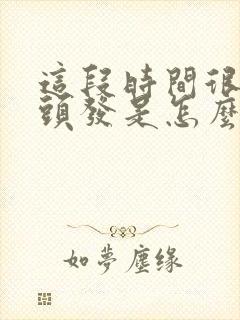 這段時間很
頭發是怎麼
如夢塵缘